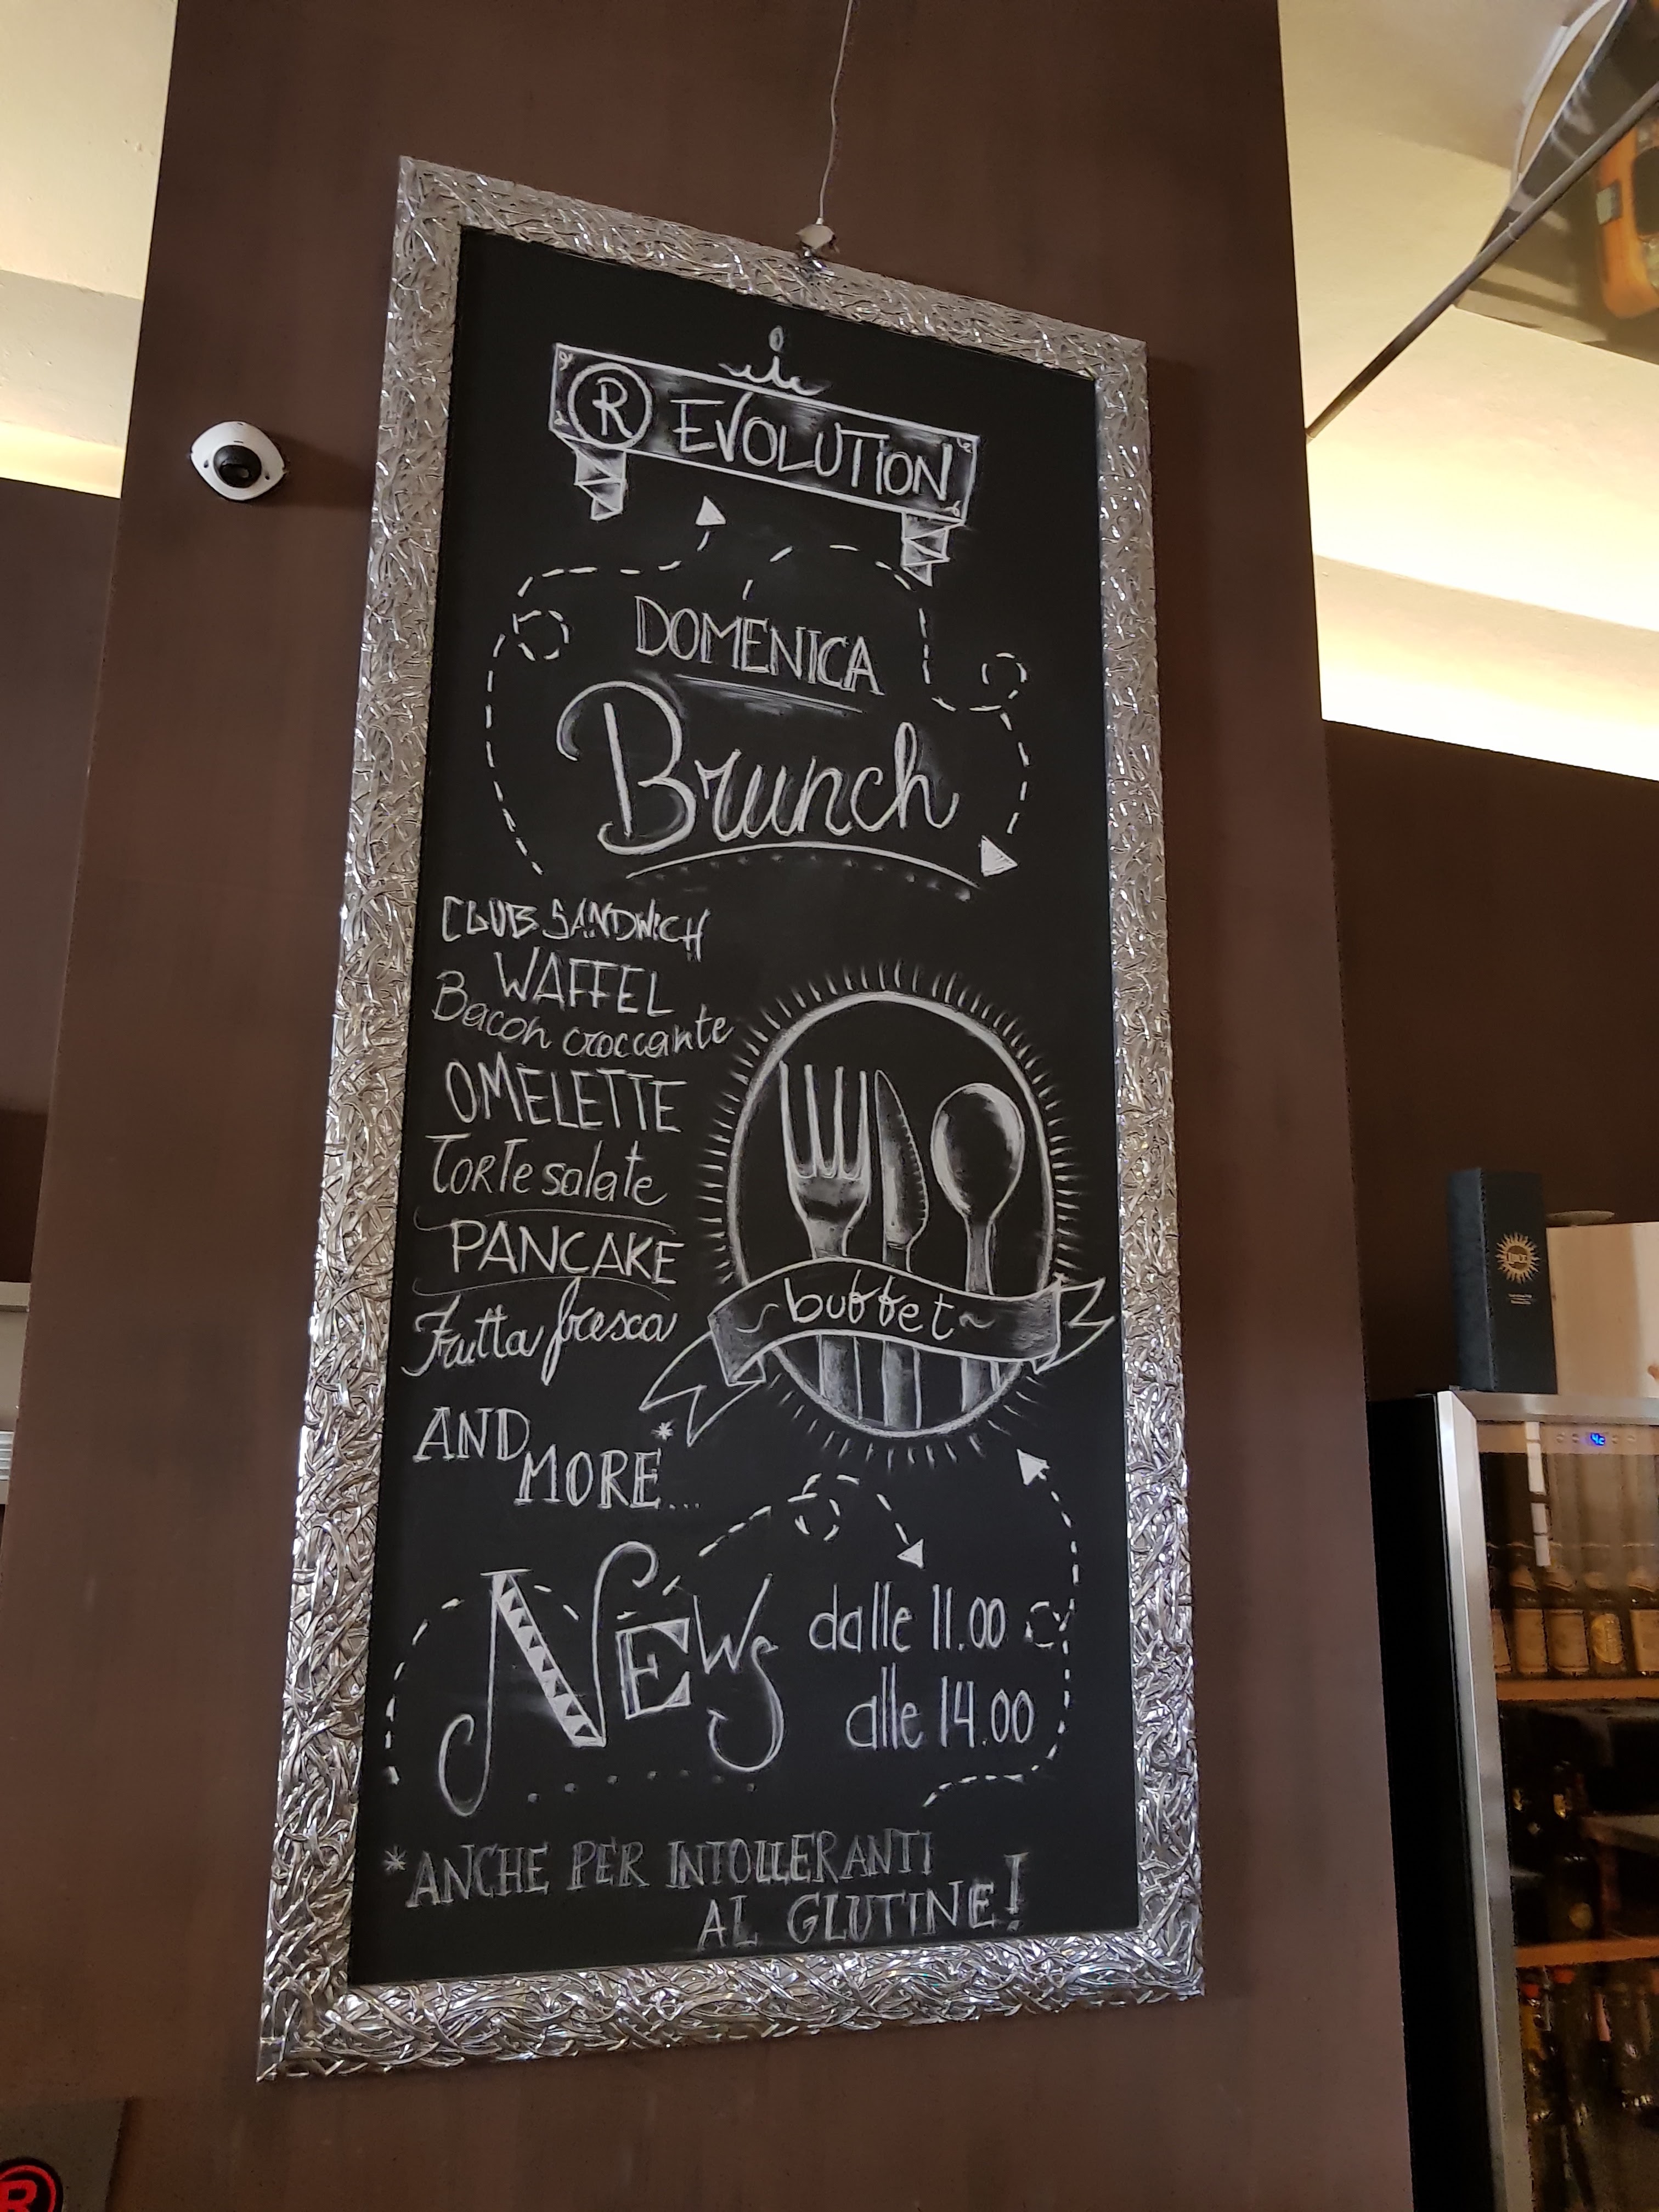 R EVOLUTION
DOMENICA
Brunch
CLUB SANDWICH
WAFFEL
Bacon croccante
OMELETTE
Torte salate
PANCAKE
Frutta fresca
~buffet~
AND
MORE*...
NEWS
dalle 11.00
alle 14.00
*ANCHE PER INTOLLERANTI
AL GLUTINE!
R